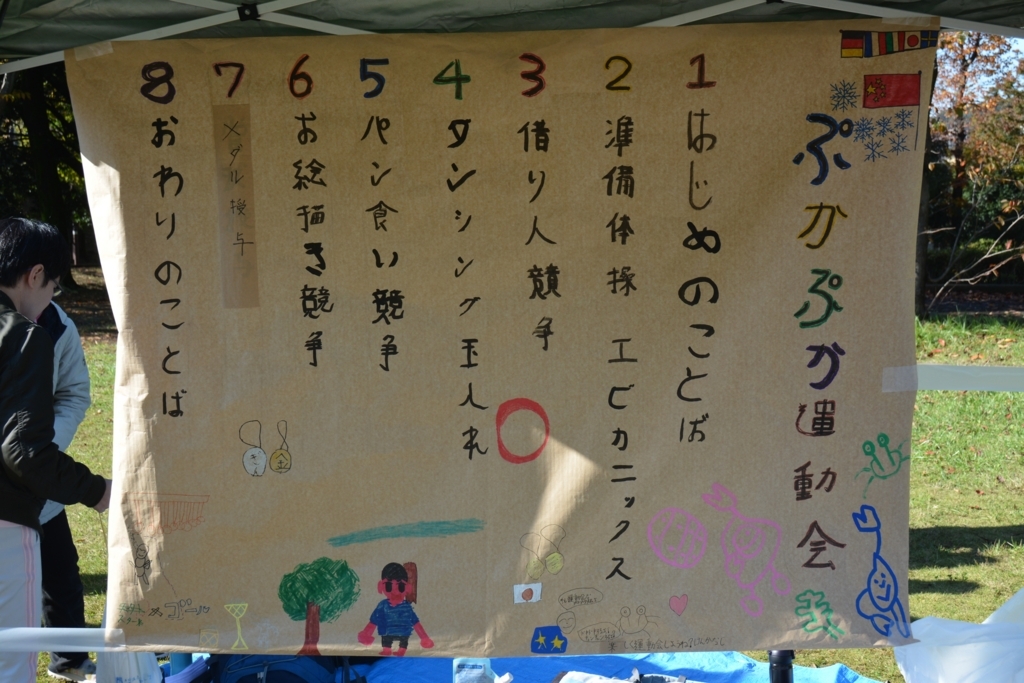 ぷかぷか運動会
1 はじめのことば
2 準備体操 エビカニックス
3 借り人競争
4 ダンシング玉入れ
5 パン食い競争
6 お絵描き競争
7 メダル授与
8 おわりのことば
ゴール